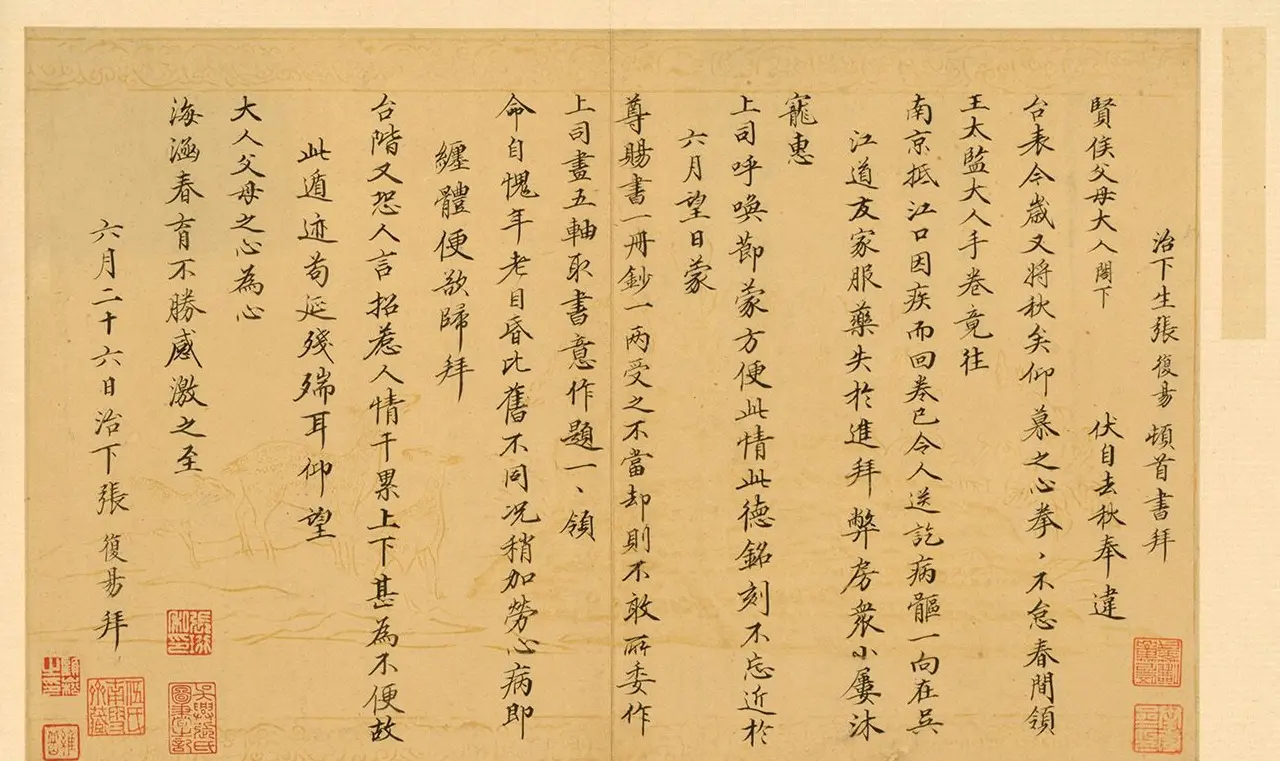 治下生張復昜頓首書拜
賢侯父母大人閣下　伏自去秋奉違
台表今歲又將秋矣仰慕之心拳、不怠春間領
王太監大人手卷竟往
南京抵江口因疾而回卷已令人送訖病軀一向在吳
江道友家服藥失於進拜弊房衆小屢沐
寵惠
上司呼喚節蒙方便此情此德銘刻不忘近於
六月望日蒙
尊賜書一冊鈔一兩受之不當却則不敢所委作
上司畫五軸取書意作題一、領
命自愧年老目昏比舊不同况稍加勞心病即
纏體便欲歸拜
台階又恐人言招惹人情干累上下甚為不便故
此遁迹苟延殘喘耳仰望
大人父母之心為心
海涵春育不勝感激之至
六月二十六日治下張復昜拜